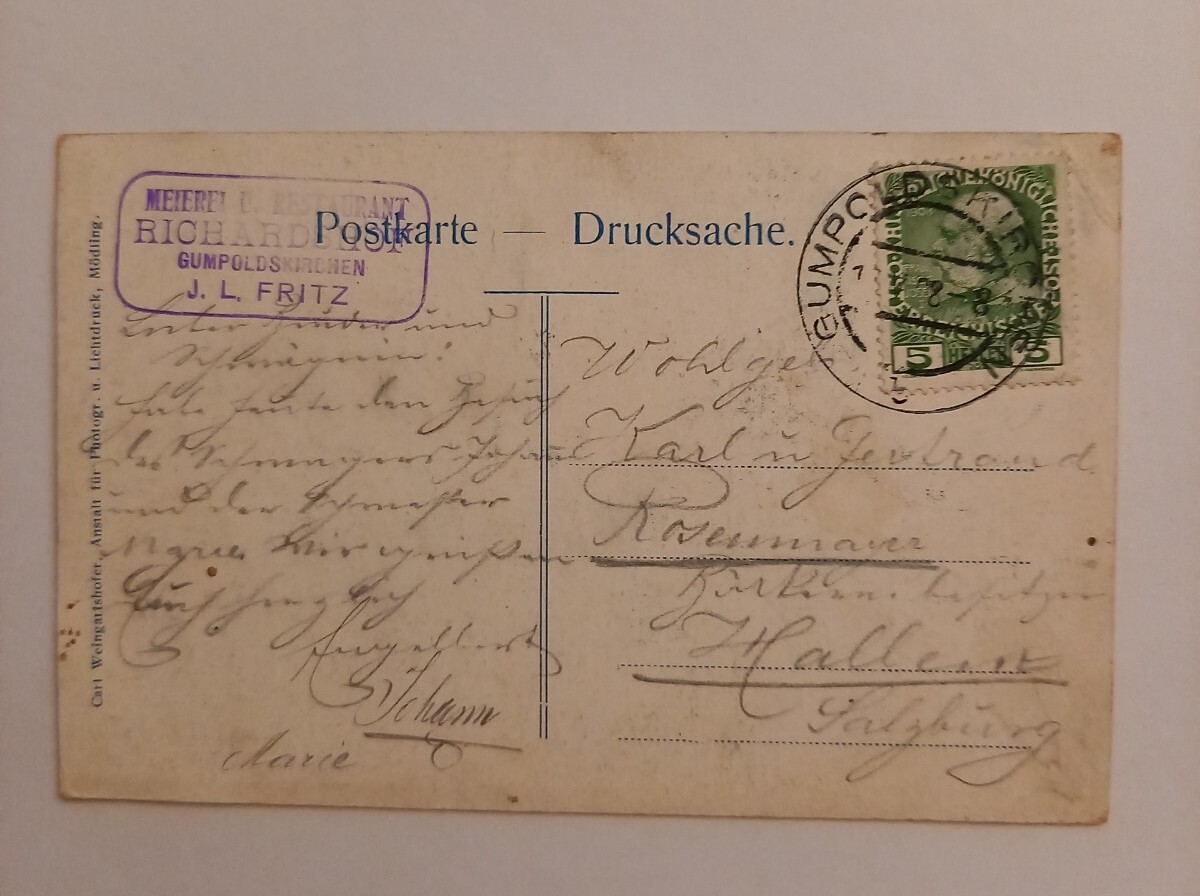 MEIEREI U. RESTAURANT
RICHARDSHOF
GUMPOLDSKIRCHEN
J. L. FRITZ
Postkarte — Drucksache.
Carl Weingartshofer, Anstalt für Photogr. u. Lichtdruck, Mödling.
GUMPOLDSKIRCHEN
5 HELLER 5
Lieber Bruder und
Schwägerin!
Habe heute den Besuch
des Schwagers Johann
und der Schwester
Marie. Wir grüßen
Euch herzlich
Engelbert
Johann
Marie
Wohlgeb
Karl u Gertraud
Rosenmayer
besitzer
Hallein
Salzburg